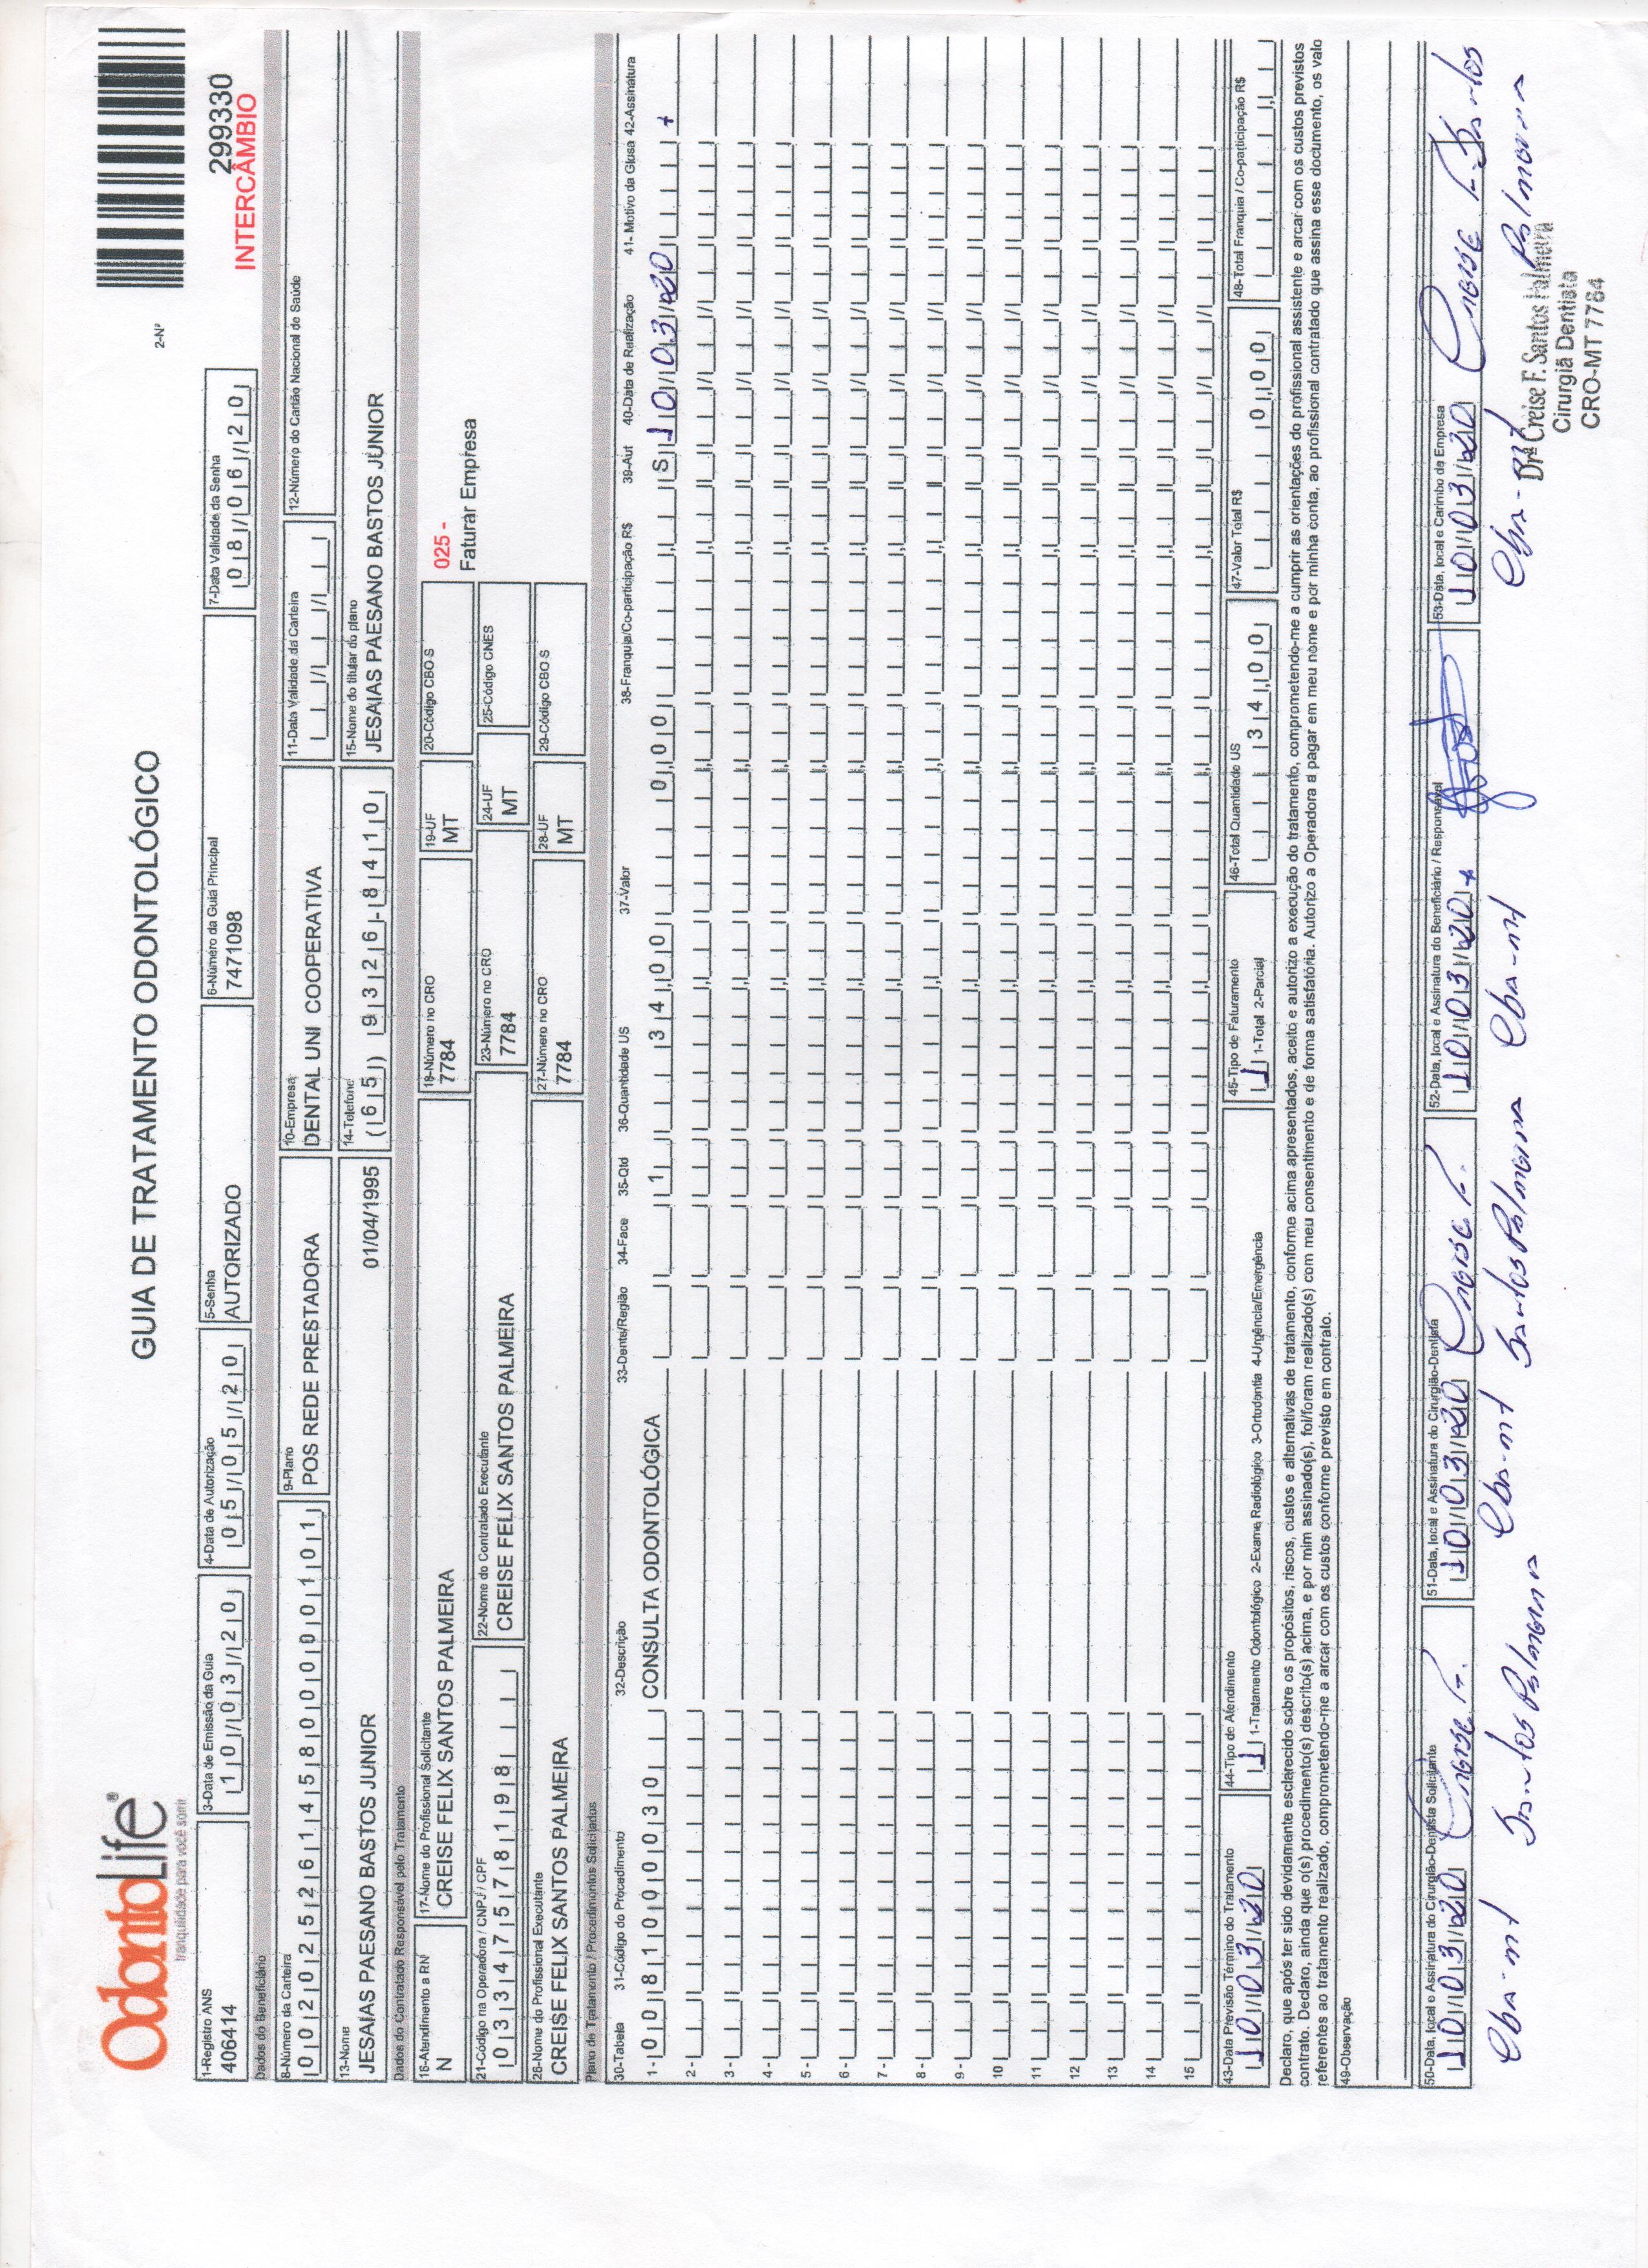 OdontoLife®
tranquilidade para você sorrir
GUIA DE TRATAMENTO ODONTOLÓGICO
2-Nº
299330
INTERCÂMBIO
1-Registro ANS
406414
3-Data de Emissão da Guia
10/03/20
4-Data de Autorização
05/05/20
5-Senha
AUTORIZADO
6-Número da Guia Principal
7471098
7-Data Validade da Senha
08/06/20
Dados do Beneficiário
8-Número da Carteira
00202526145800000101
9-Plano
POS REDE PRESTADORA
10-Empresa
DENTAL UNI COOPERATIVA
11-Data Validade da Carteira
12-Número do Cartão Nacional de Saúde
13-Nome
JESAIAS PAESANO BASTOS JUNIOR
01/04/1995
14-Telefone
(65) 9326-8410
15-Nome do titular do plano
JESAIAS PAESANO BASTOS JUNIOR
Dados do Contratado Responsável pelo Tratamento
16-Atendimento a RN
N
17-Nome do Profissional Solicitante
CREISE FELIX SANTOS PALMEIRA
18-Número no CRO
7784
19-UF
MT
20-Código CBO S
025 -
Faturar Empresa
21-Código na Operadora / CNPJ / CPF
03347578198
22-Nome do Contratado Executante
CREISE FELIX SANTOS PALMEIRA
23-Número no CRO
7784
24-UF
MT
25-Código CNES
26-Nome do Profissional Executante
CREISE FELIX SANTOS PALMEIRA
27-Número no CRO
7784
28-UF
MT
29-Código CBO S
Plano de Tratamento / Procedimentos Solicitados
30-Tabela 31-Código do Procedimento 32-Descrição 33-Dente/Região 34-Face 35-Qtd 36-Quantidade US 37-Valor 38-Franquia/Co-participação R$ 39-Aut 40-Data de Realização 41- Motivo da Glosa 42-Assinatura
1- 00 81000030 CONSULTA ODONTOLÓGICA 1 34,00 0,00 S 10/03/20
2-
3-
4-
5-
6-
7-
8-
9-
10
11
12
13
14
15
43-Data Previsão Término do Tratamento
10/03/20
44-Tipo de Atendimento
1 1-Tratamento Odontológico 2-Exame Radiológico 3-Ortodontia 4-Urgência/Emergência
45-Tipo de Faturamento
1 1-Total 2-Parcial
46-Total Quantidade US
34,00
47-Valor Total R$
0,00
48-Total Franquia / Co-participação R$
Declaro, que após ter sido devidamente esclarecido sobre os propósitos, riscos, custos e alternativas de tratamento, conforme acima apresentados, aceito e autorizo a execução do tratamento, comprometendo-me a cumprir as orientações do profissional assistente e arcar com os custos previstos
contrato. Declaro, ainda que o(s) procedimento(s) descrito(s) acima, e por mim assinado(s), foi/foram realizado(s) com meu consentimento e de forma satisfatória. Autorizo a Operadora a pagar em meu nome e por minha conta, ao profissional contratado que assina esse documento, os valo
referentes ao tratamento realizado, comprometendo-me a arcar com os custos conforme previsto em contrato.
49-Observação
50-Data, local e Assinatura do Cirurgião-Dentista Solicitante
10/03/20 Creise F.
Cba-mt Santos Palmeira
51-Data, local e Assinatura do Cirurgião-Dentista
10/03/20 Creise F.
Cba-mt Santos Palmeira
52-Data, local e Assinatura do Beneficiário / Responsável
10/03/20
Cba-mt
53-Data, local e Carimbo da Empresa
10/03/20 Creise F. Santos
Cba-mt Palmeira
Drª Creise F. Santos Palmeira
Cirurgiã Dentista
CRO-MT 7784